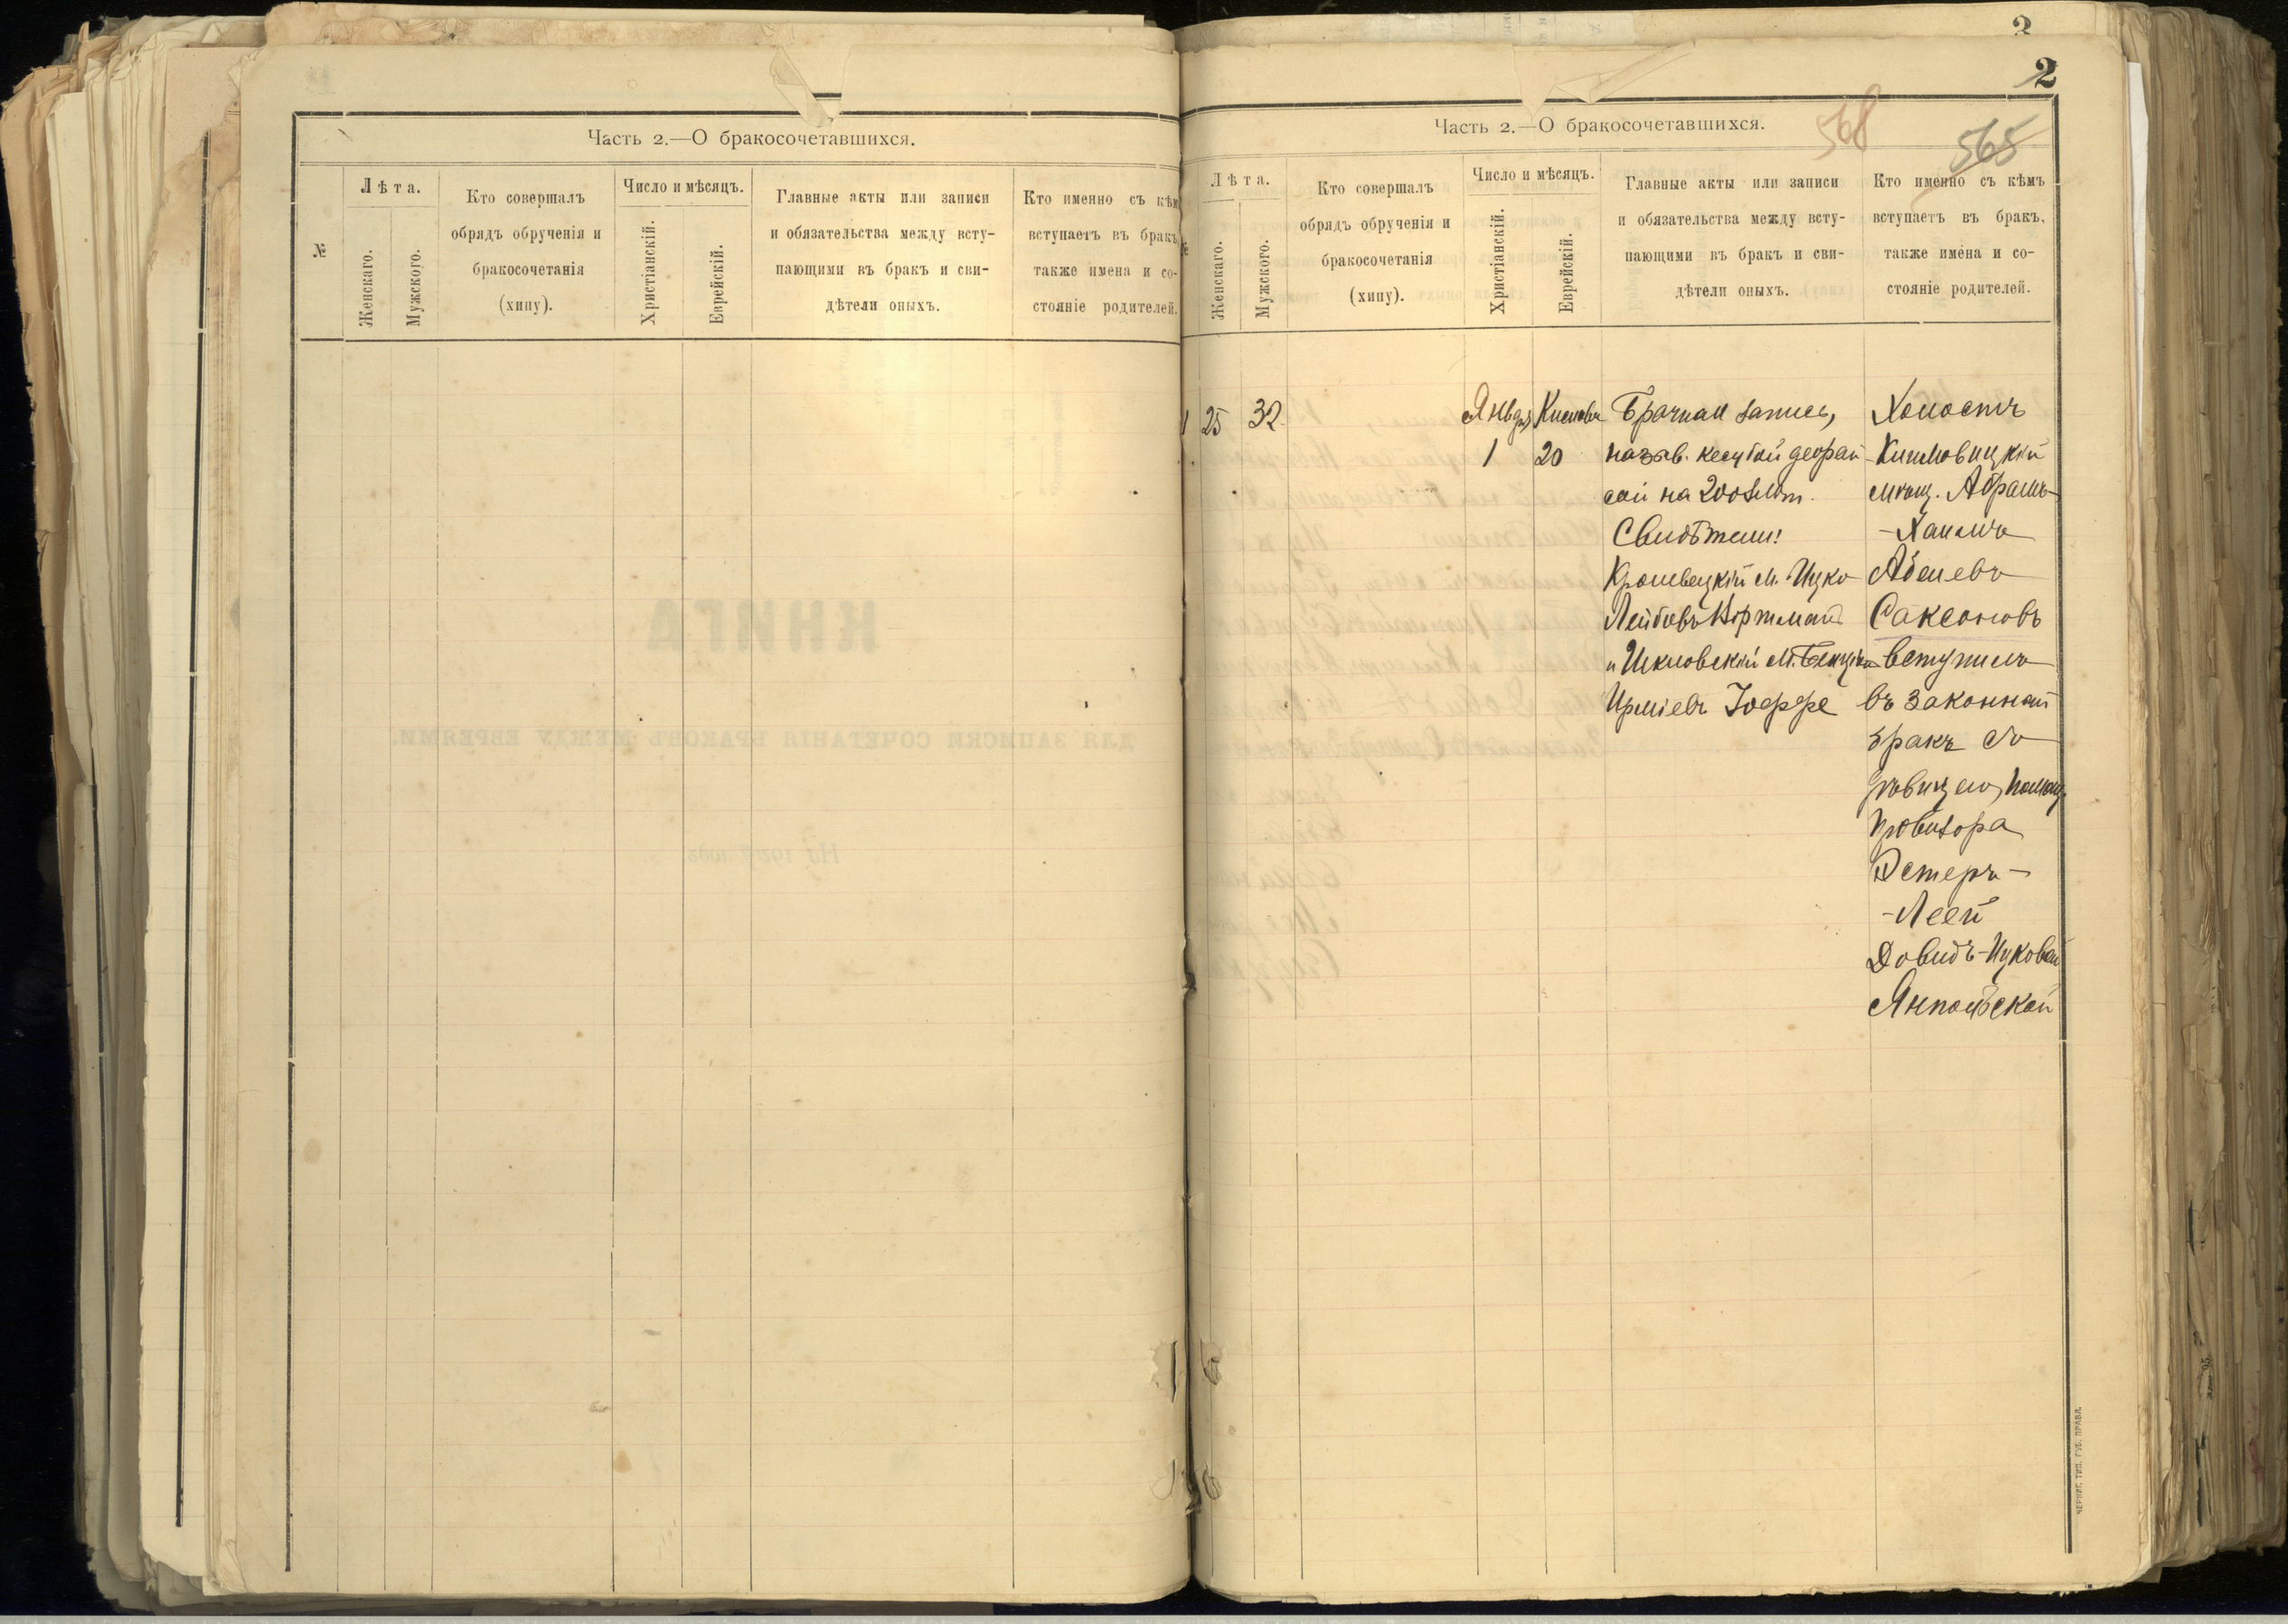 Часть 2.—О бракосочетавшихся.
№
Лѣта.
Женскаго.
Мужского.
Кто совершалъ
обрядъ обрученія и
бракосочетанія
(хипу).
Число и мѣсяцъ.
Христіанскій.
Еврейскій.
Главные акты или записи
и обязательства между всту-
пающими въ бракъ и сви-
дѣтели оныхъ.
Кто именно съ кѣм
вступаетъ въ бракъ,
также имена и со-
стояніе родителей.
3
2
Часть 2.—О бракосочетавшихся.
568
565
№
Лѣта.
Женскаго.
Мужского.
Кто совершалъ
обрядъ обрученія и
бракосочетанія
(хипу).
Число и мѣсяцъ.
Христіанскій.
Еврейскій.
Главные акты или записи
и обязательства между всту-
пающими въ бракъ и сви-
дѣтели оныхъ.
Кто именно съ кѣмъ
вступаетъ въ бракъ,
также имена и со-
стояніе родителей.
1
25
32
Января
1
20
Брачная запись,
назыв. кесубой
на 200 злот.
Свидѣтели:
Кролевецкій м. Ицко
Лейбовъ Вортманъ
и Шкловскій м.
Ирміевъ Іоффе
Холостъ
Климовицкій
мѣщ. Абрамъ-
-Хаимъ
Абелевъ
Саксоновъ
вступилъ
въ законный
бракъ съ
дѣвицею, помощ.
провизора
Эстеръ-
-Леей
Довидъ-Ицковой
Ямпольской
ЧЕРНИГ. ТИП. ГУБ. ПРАВЛ.